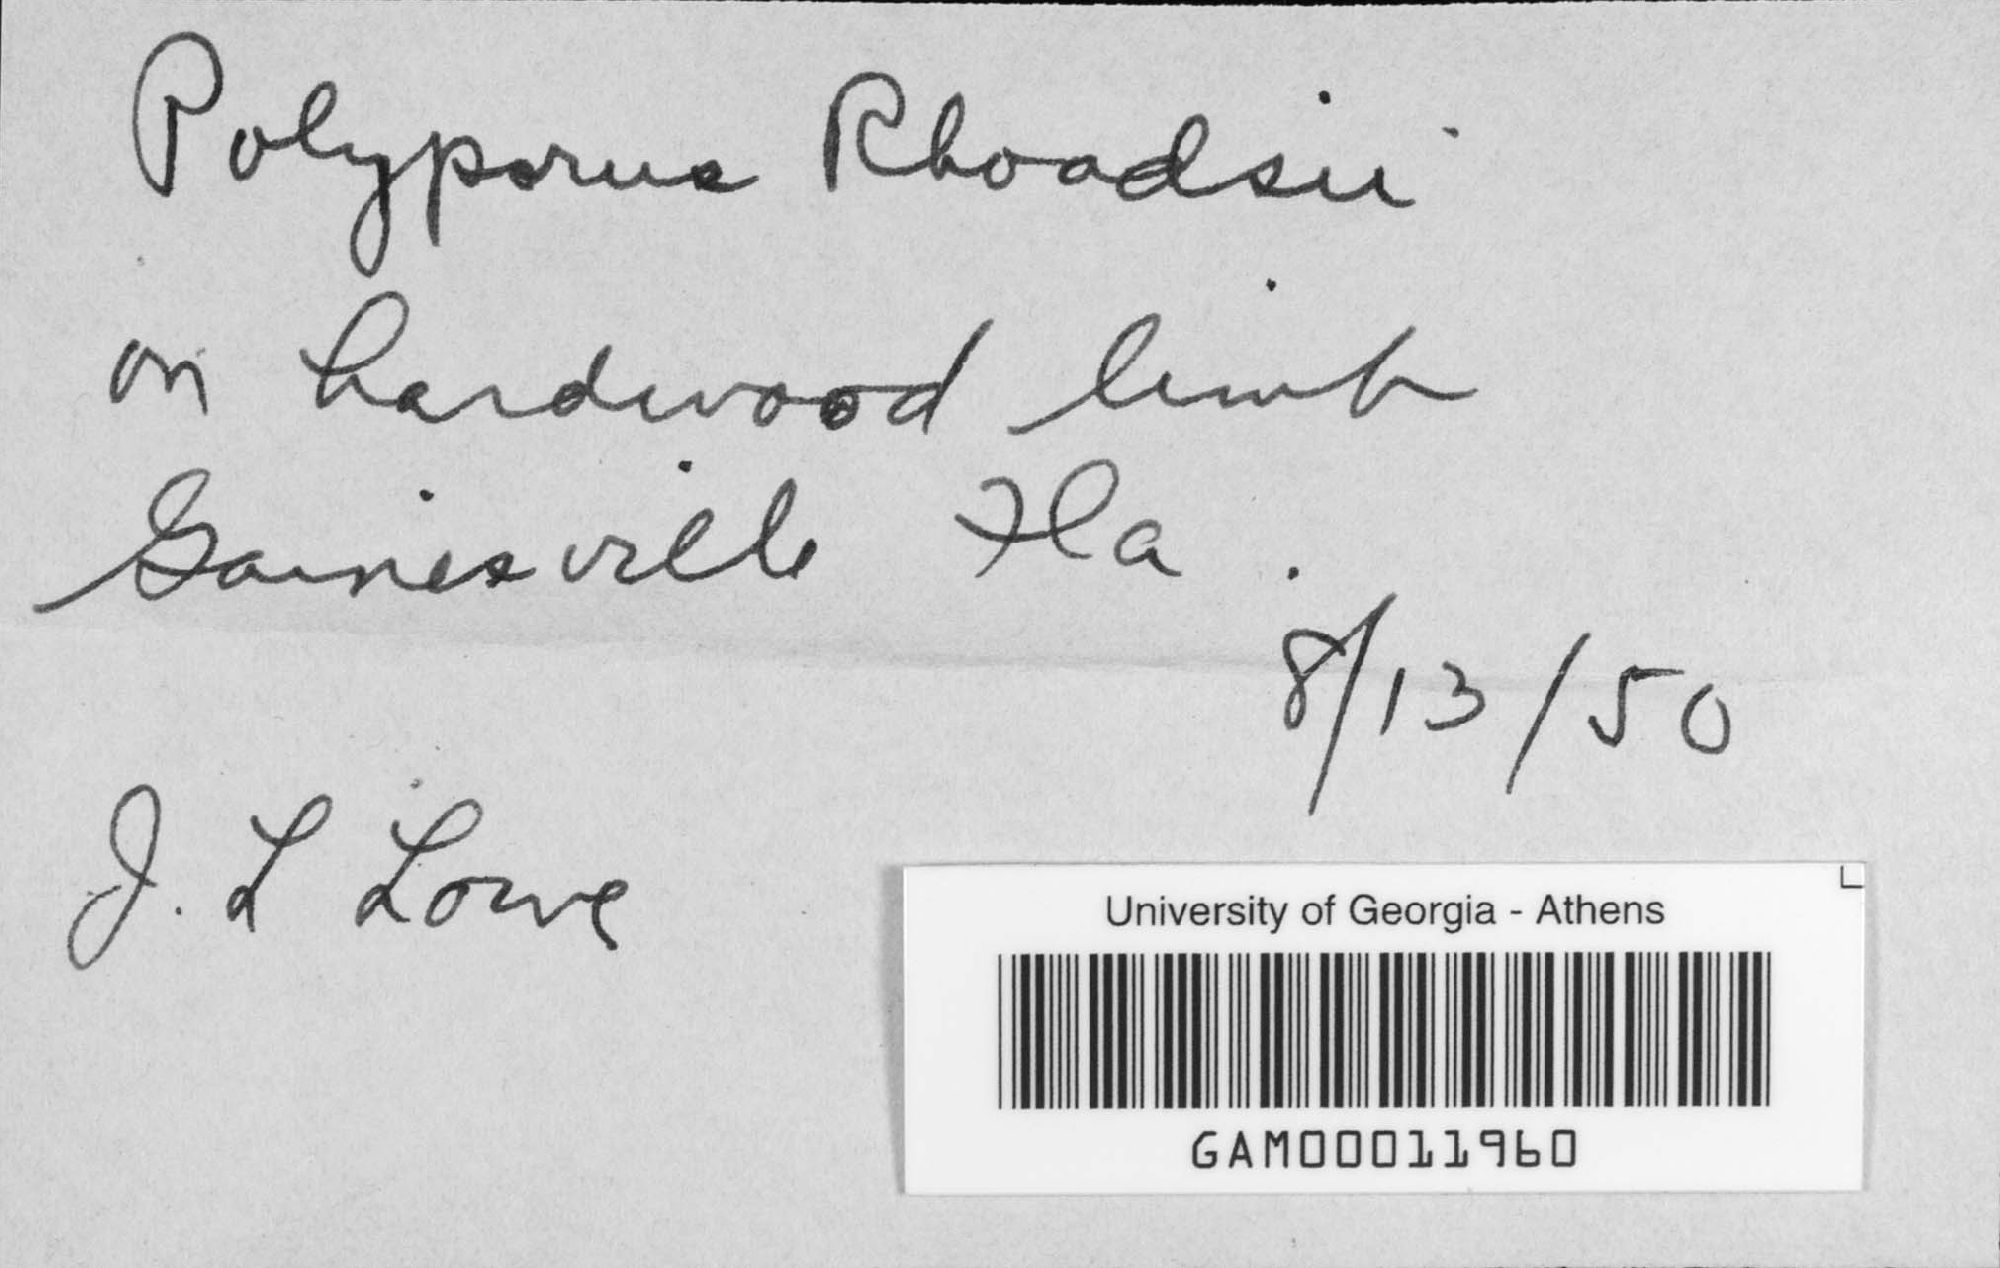 Polyporus Rhoadsii
on hardwood limb
Gainesville Fla.
8/13/50
J. L Lowe
University of Georgia - Athens
GAM00011960